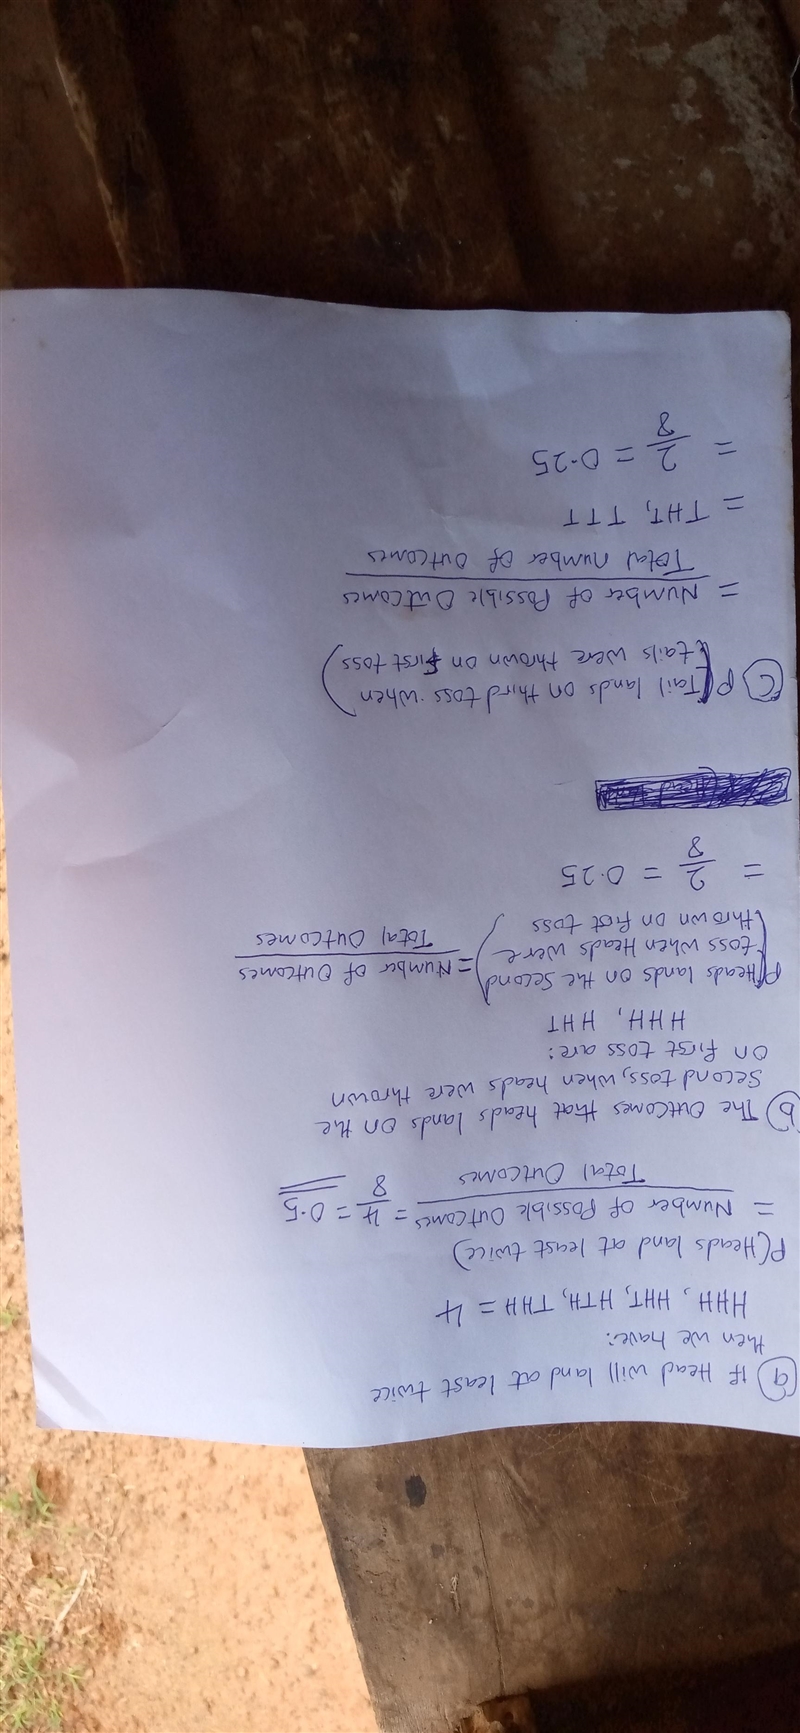 (a) If Head will land at least twice
then we have:
HHH, HHT, HTH, THH = 4
P(Heads land at least twice)
= Number of Possible Outcomes / Total Outcomes = 4/8 = 0.5
(b) The Outcomes that heads lands on the
Second toss, when heads were thrown
on first toss are:
HHH, HHT
P(Heads lands on the Second
toss when Heads were
thrown on first toss) = Number of Outcomes / Total Outcomes
= 2/8 = 0.25
(c) P(Tail lands on third toss when
tails were thrown on first toss)
= Number of Possible Outcomes / Total number of outcomes
= THT, TTT
= 2/8 = 0.25